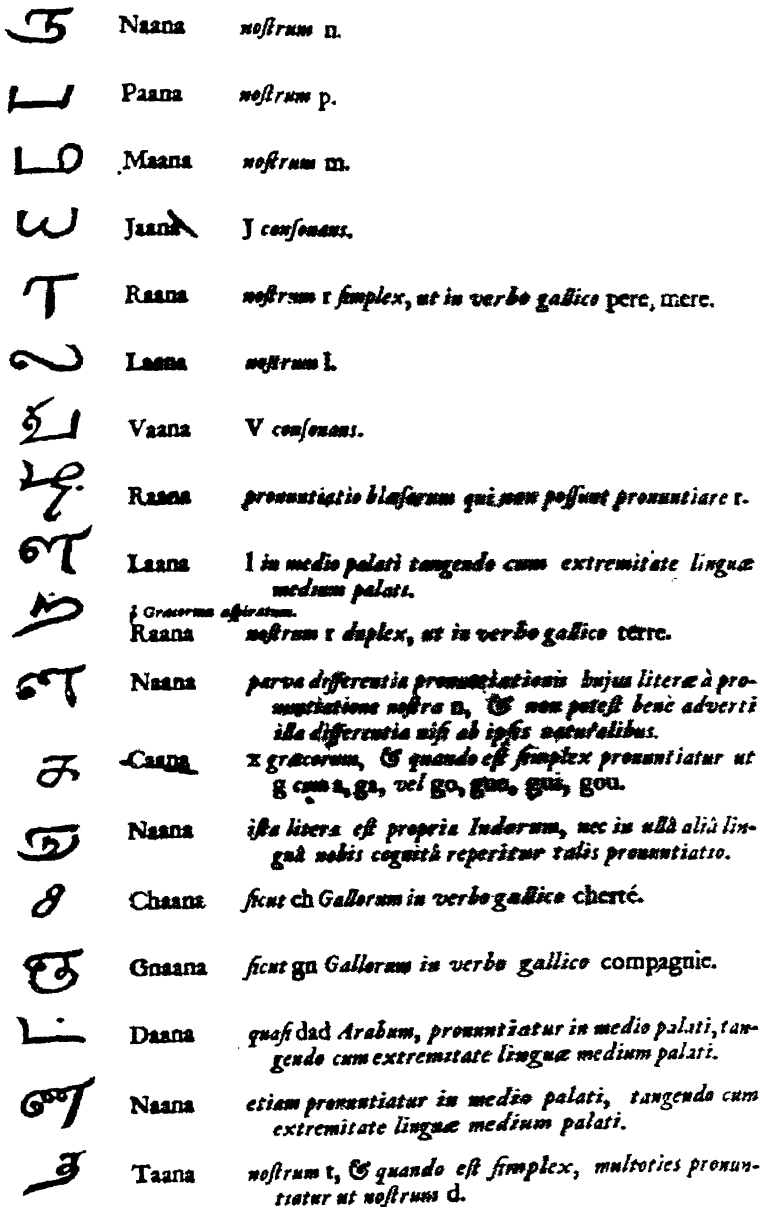 ந Naana noſtrum n.
ப Paana noſtrum p.
ம Maana noſtrum m.
ய Jaana J conſonans.
ர Raana noſtrum r ſimplex, ut in verbo gallico pere, mere.
ல Laana noſtrum l.
வ Vaana V conſonans.
ழ Raana pronuntiatio blæſorum qui non poſſunt pronuntiare r.
ள Laana l in medio palati tangendo cum extremitate linguæ
medium palati.
ρ́ Græcorum aſpiratum.
ற Raana noſtrum r duplex, ut in verbo gallico terre.
ன Naana parva differentia pronuntiationis hujus literæ à pro-
nuntiatione noſtra n, & non poteſt benè adverti
illa differentia niſi ab ipſis naturalibus.
க Caana x græcorum, & quando eſt ſimplex pronuntiatur ut
g cum a, ga, vel go, gue, gui, gou.
ங Naana iſta litera eſt propria Indorum, nec in ullâ aliâ lin-
guâ nobis cognitâ reperitur talis pronuntiatio.
ச Chaana ſicut ch Gallorum in verbo gallico cherté.
ஞ Gnaana ſicut gn Gallorum in verbo gallico compagnie.
ட Daana quaſi dad Arabum, pronuntiatur in medio palati, tan-
gendo cum extremitate linguæ medium palati.
ண Naana etiam pronuntiatur in medio palati, tangendo cum
extremitate linguæ medium palati.
த Taana noſtrum t, & quando eſt ſimplex, multoties pronun-
tiatur ut noſtrum d.